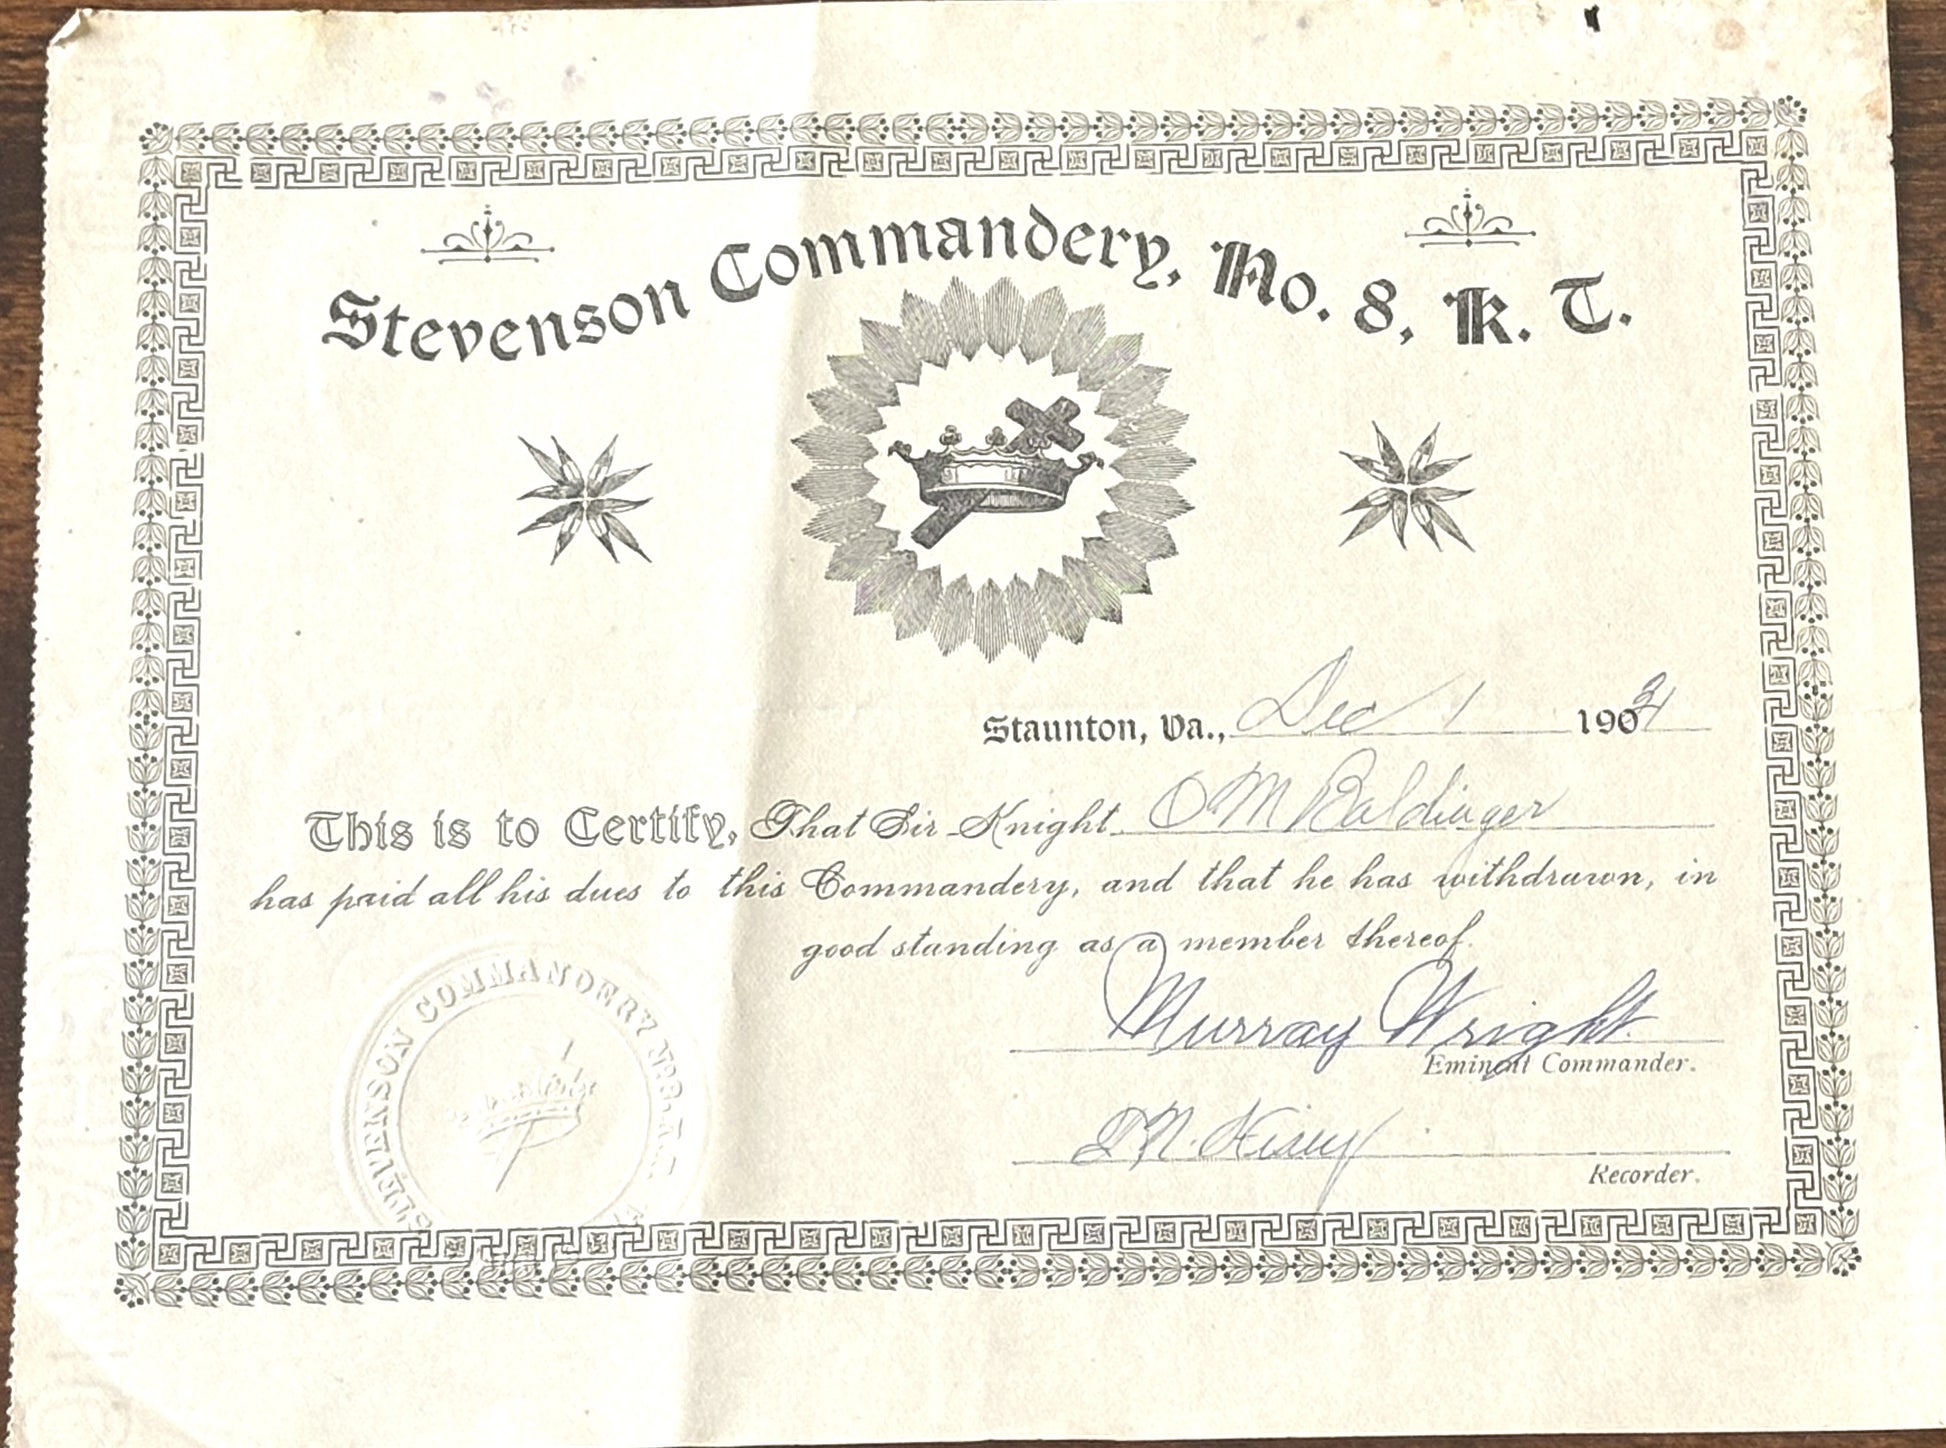 Stevenson Commandery, No. 8, K. T.
Staunton, Va., Dec 1 1931
This is to Certify, That Sir Knight O M Baldinger
has paid all his dues to this Commandery, and that he has withdrawn, in
good standing as a member thereof.
Murray Wright
Eminent Commander.
Recorder.
STEVENSON COMMANDERY No. 8, K.T.